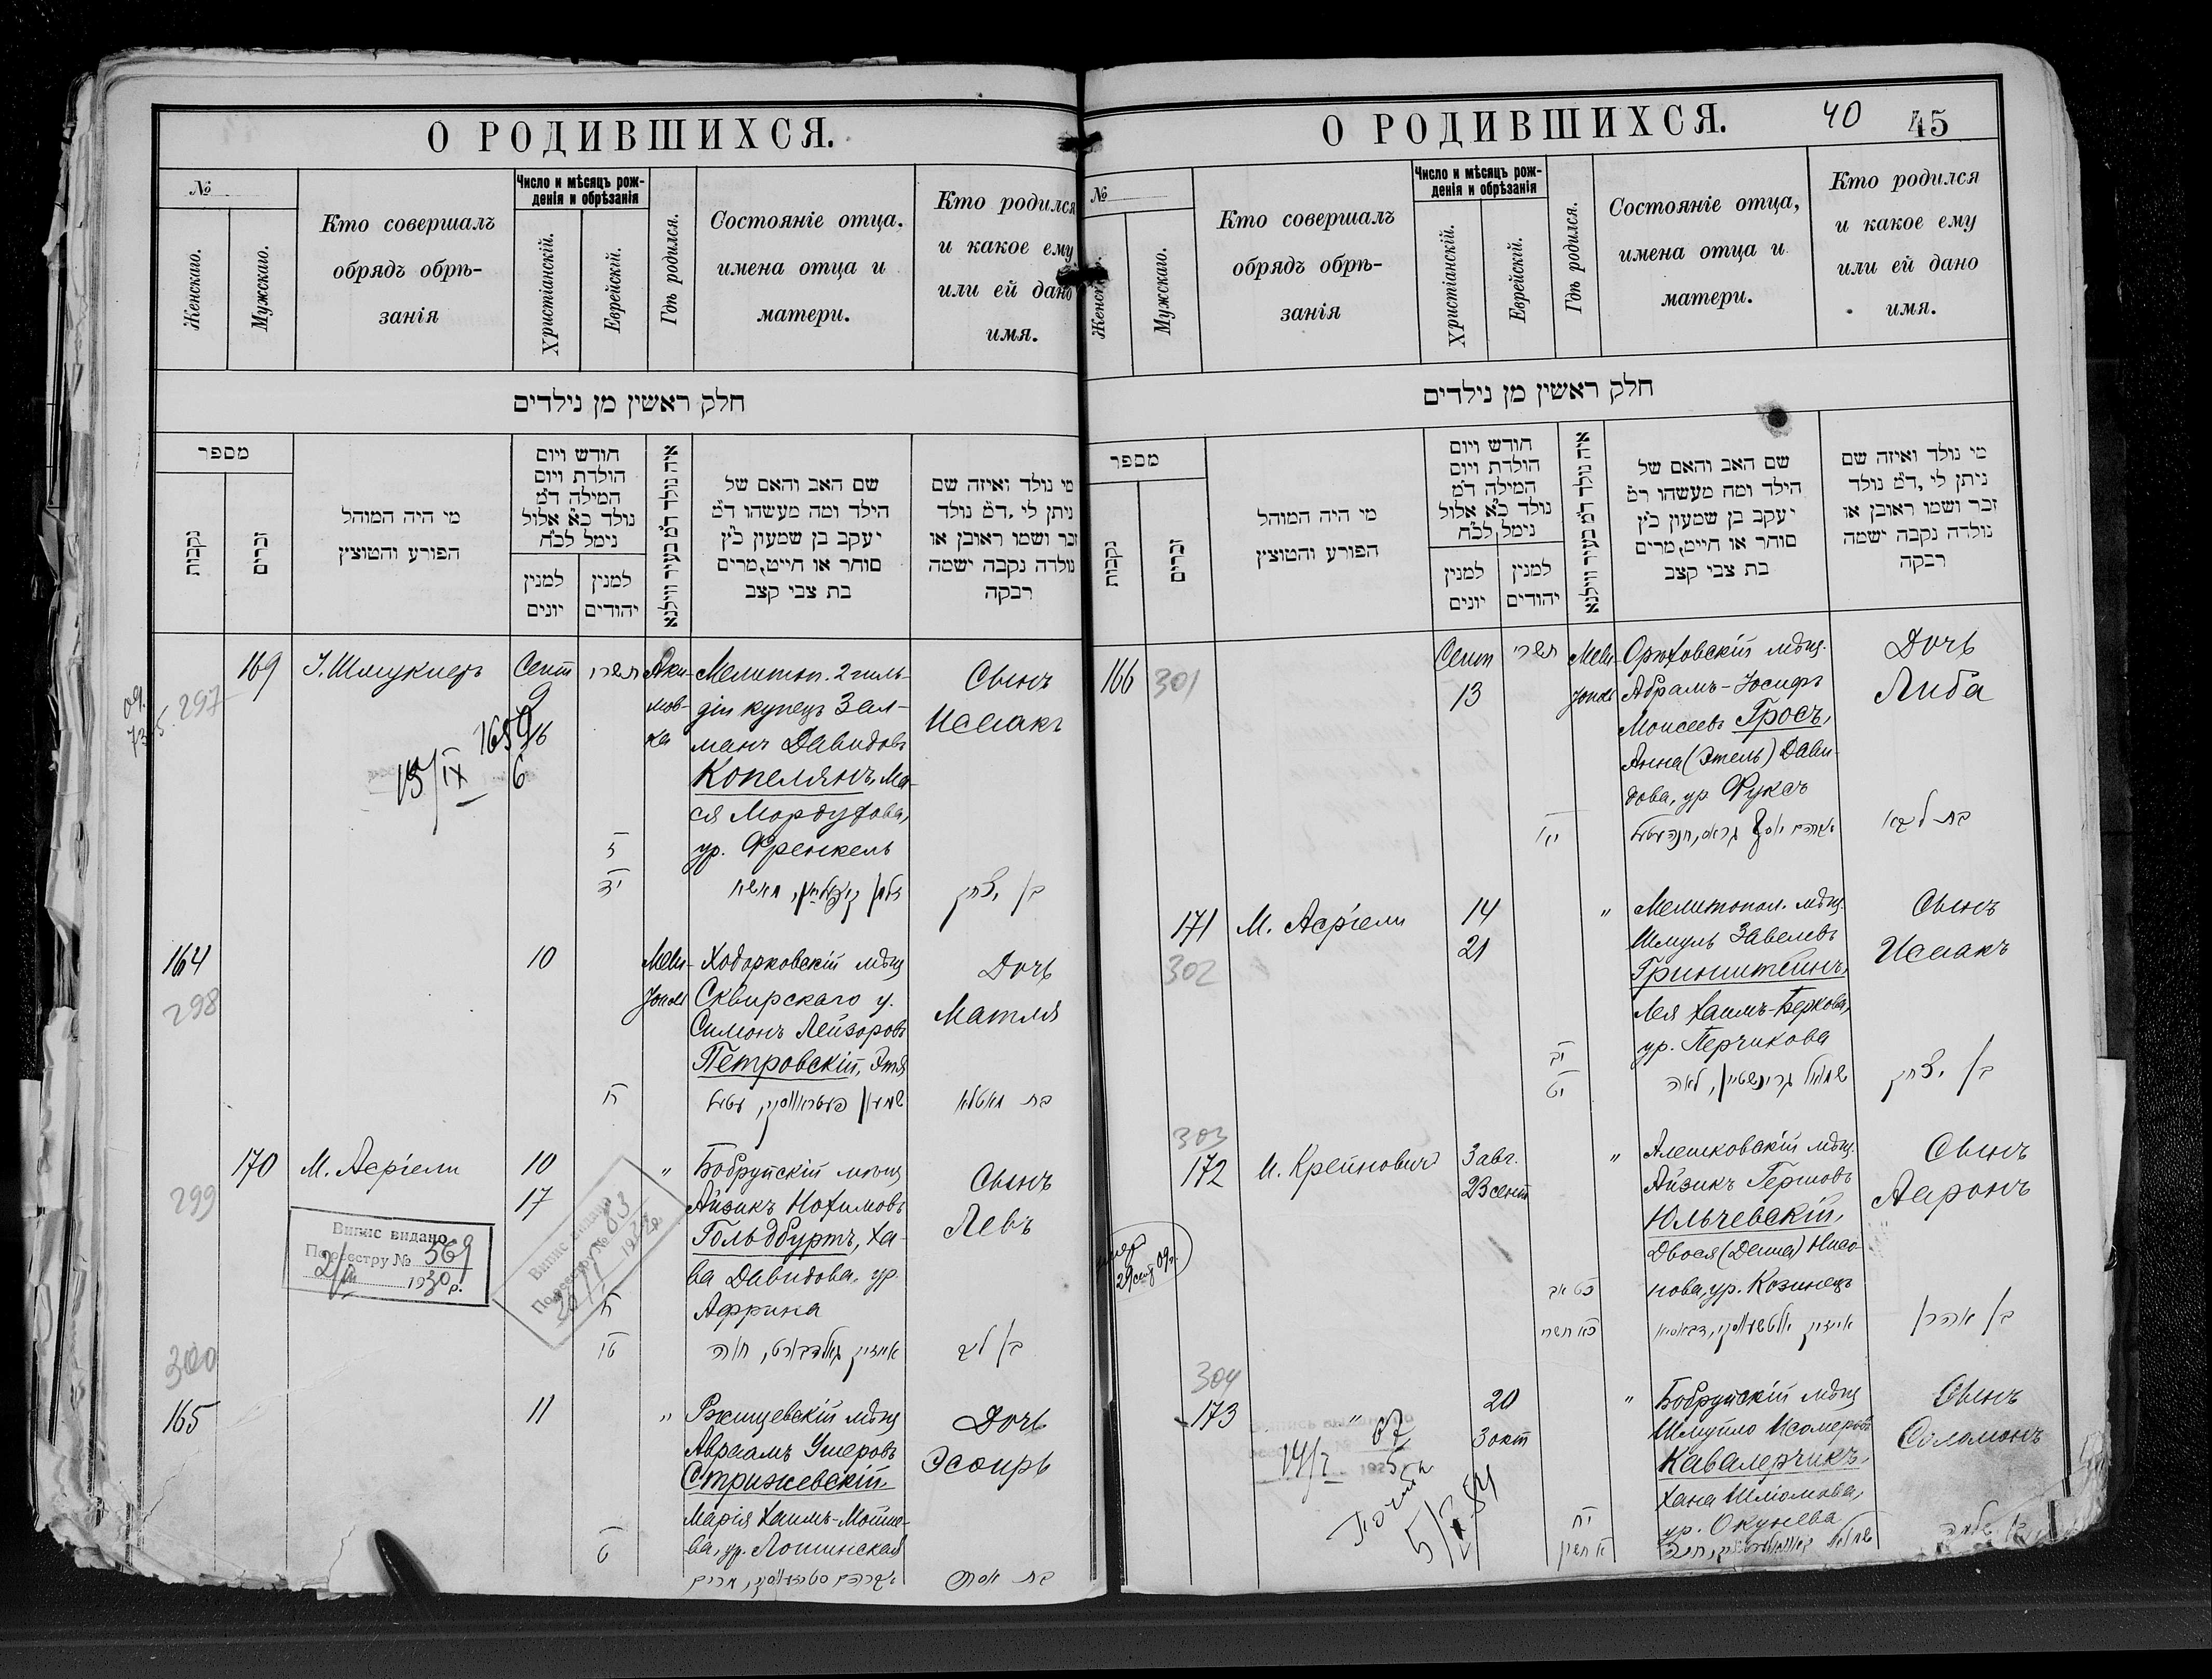 О РОДИВШИХСЯ.
№
Женскаго.
Мужскаго.
Кто совершалъ
обрядъ обрѣ-
занія
Число и мѣсяцъ рож-
денія и обрѣзанія
Христіанскій.
Еврейскій.
Гдѣ родился.
Состояніе отца,
имена отца и
матери.
Кто родился
и какое ему
или ей дано
имя.
חלק ראשין מן נילדים
מספר
נקבות
זכרים
מי היה המוהל
הפורע והטוצץ
חודש ויום
הולדת ויום
המילה ד״מ
נולד כ״א אלול
נימל לכ״ח
למנין
יונים
למנין
יהודים
איה נולד ד״מ בעיר ווילנא
שם האב והאם של
הילד ומה מעשהו ד״מ
יעקב בן שמעון כ״ץ
סוחר או חייט, מרים
בת צבי קצב
מי נולד ואיזה שם
ניתן לי, ד״מ נולד
זכר ושמו ראובן או
נולדה נקבה ישמה
רבקה
169
297
Сент
9
16
תשרי
Аки-
мов-
ка
Мелитоп. 2 гиль-
діи купецъ Зал-
манъ Давидовъ
Копелянъ, Ма-
ся Мордухова,
ур. Френкель
Сынъ
Исаакъ
15/IX
6
י״ד
בן יצחק
164
298
10
Мели-
тополь
Ходорковскій мѣщ.
Сквирскаго у.
Симонъ Лейзоровъ
Петровскій, Этя
Дочь
Матля
ח
שמעון פעטראווסקי, עטיל
בת מאטלא
170
299
М. Асріели
10
17
"
Бобруйскій мѣщ.
Айзикъ Нохимовъ
Гольдбуртъ, Ха-
ва Давидова, ур.
Африна
Сынъ
Левъ
Випис видано
По реєстру № 569
1930 р.
Випис видано
По реєстру № 83
ח
ט״ו
אייזיק גאלדבורט, חוה
בן ליב
300
165
11
"
Ржищевскій мѣщ.
Авраамъ Ушеровъ
Стрижевскій,
Марія Хаимъ-Мойше-
ва, ур. Лошинская
Дочь
Эсѳирь
ט
בת אסתר
О РОДИВШИХСЯ.
40
45
№
Женск
Мужскаго.
Кто совершалъ
обрядъ обрѣ-
занія
Число и мѣсяцъ рож-
денія и обрѣзанія
Христіанскій.
Еврейскій.
Гдѣ родился.
Состояніе отца,
имена отца и
матери.
Кто родился
и какое ему
или ей дано
имя.
חלק ראשין מן נילדים
מספר
נקבות
זכרים
מי היה המוהל
הפורע והטוצץ
חודש ויום
הולדת ויום
המילה ד״מ
נולד כ״א אלול
נימל לכ״ח
למנין
יונים
למנין
יהודים
איה נולד ד״מ בעיר ווילנא
שם האב והאם של
הילד ומה מעשהו ד״מ
יעקב בן שמעון כ״ץ
סוחר או חייט, מרים
בת צבי קצב
מי נולד ואיזה שם
ניתן לי, ד״מ נולד
זכר ושמו ראובן או
נולדה נקבה ישמה
רבקה
166
301
Сент
13
תשרי
Мели-
тополь
Орѣховскій мѣщ.
Абрамъ-Іосифъ
Моисеевъ Гросъ,
Анна (Этель) Дави-
дова, ур. Фуксъ
Дочь
Либа
י״א
בת ליבא
171
302
М. Асріели
14
21
"
Мелитопол. мѣщ.
Шмуль Завелевъ
Гринштейнъ,
Лея Хаимъ-Беркова,
ур. Перчикова
Сынъ
Исаакъ
י״ב
י״ט
שמואל גרינשטיין, לאה
בן יצחק
303
172
И. Крейновичъ
3 авг.
23 сент
"
Алешковскій мѣщ.
Айзикъ Гершовъ
Юльчевскій,
Двося (Деиша) Нисо-
нова, ур. Козинецъ
Сынъ
Ааронъ
29 сент 09 г.
כ״ט אב
כ״א תשרי
בן אהרן
304
173
"
20
3 окт
"
Бобруйскій мѣщ.
Шмуйло Исомеровъ
Кавалерчикъ,
Хана Шліомова,
ур. Окунева
Сынъ
Соломонъ
67
14/7
י״ח
בן שלמה